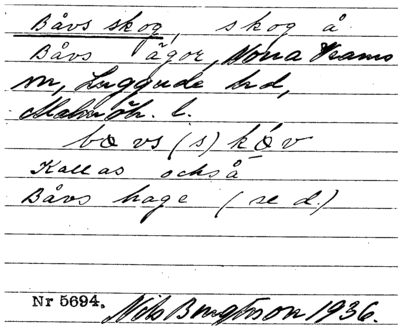 Båvs skog, skog å
Båvs ägor, Norra Vrams
sn, Luggude hd,
Malmöh. l.
bovs(s)kóv
Kallas också
Båvs hage (se d.)
Nr 5694.
Nils Bengtsson 1936.